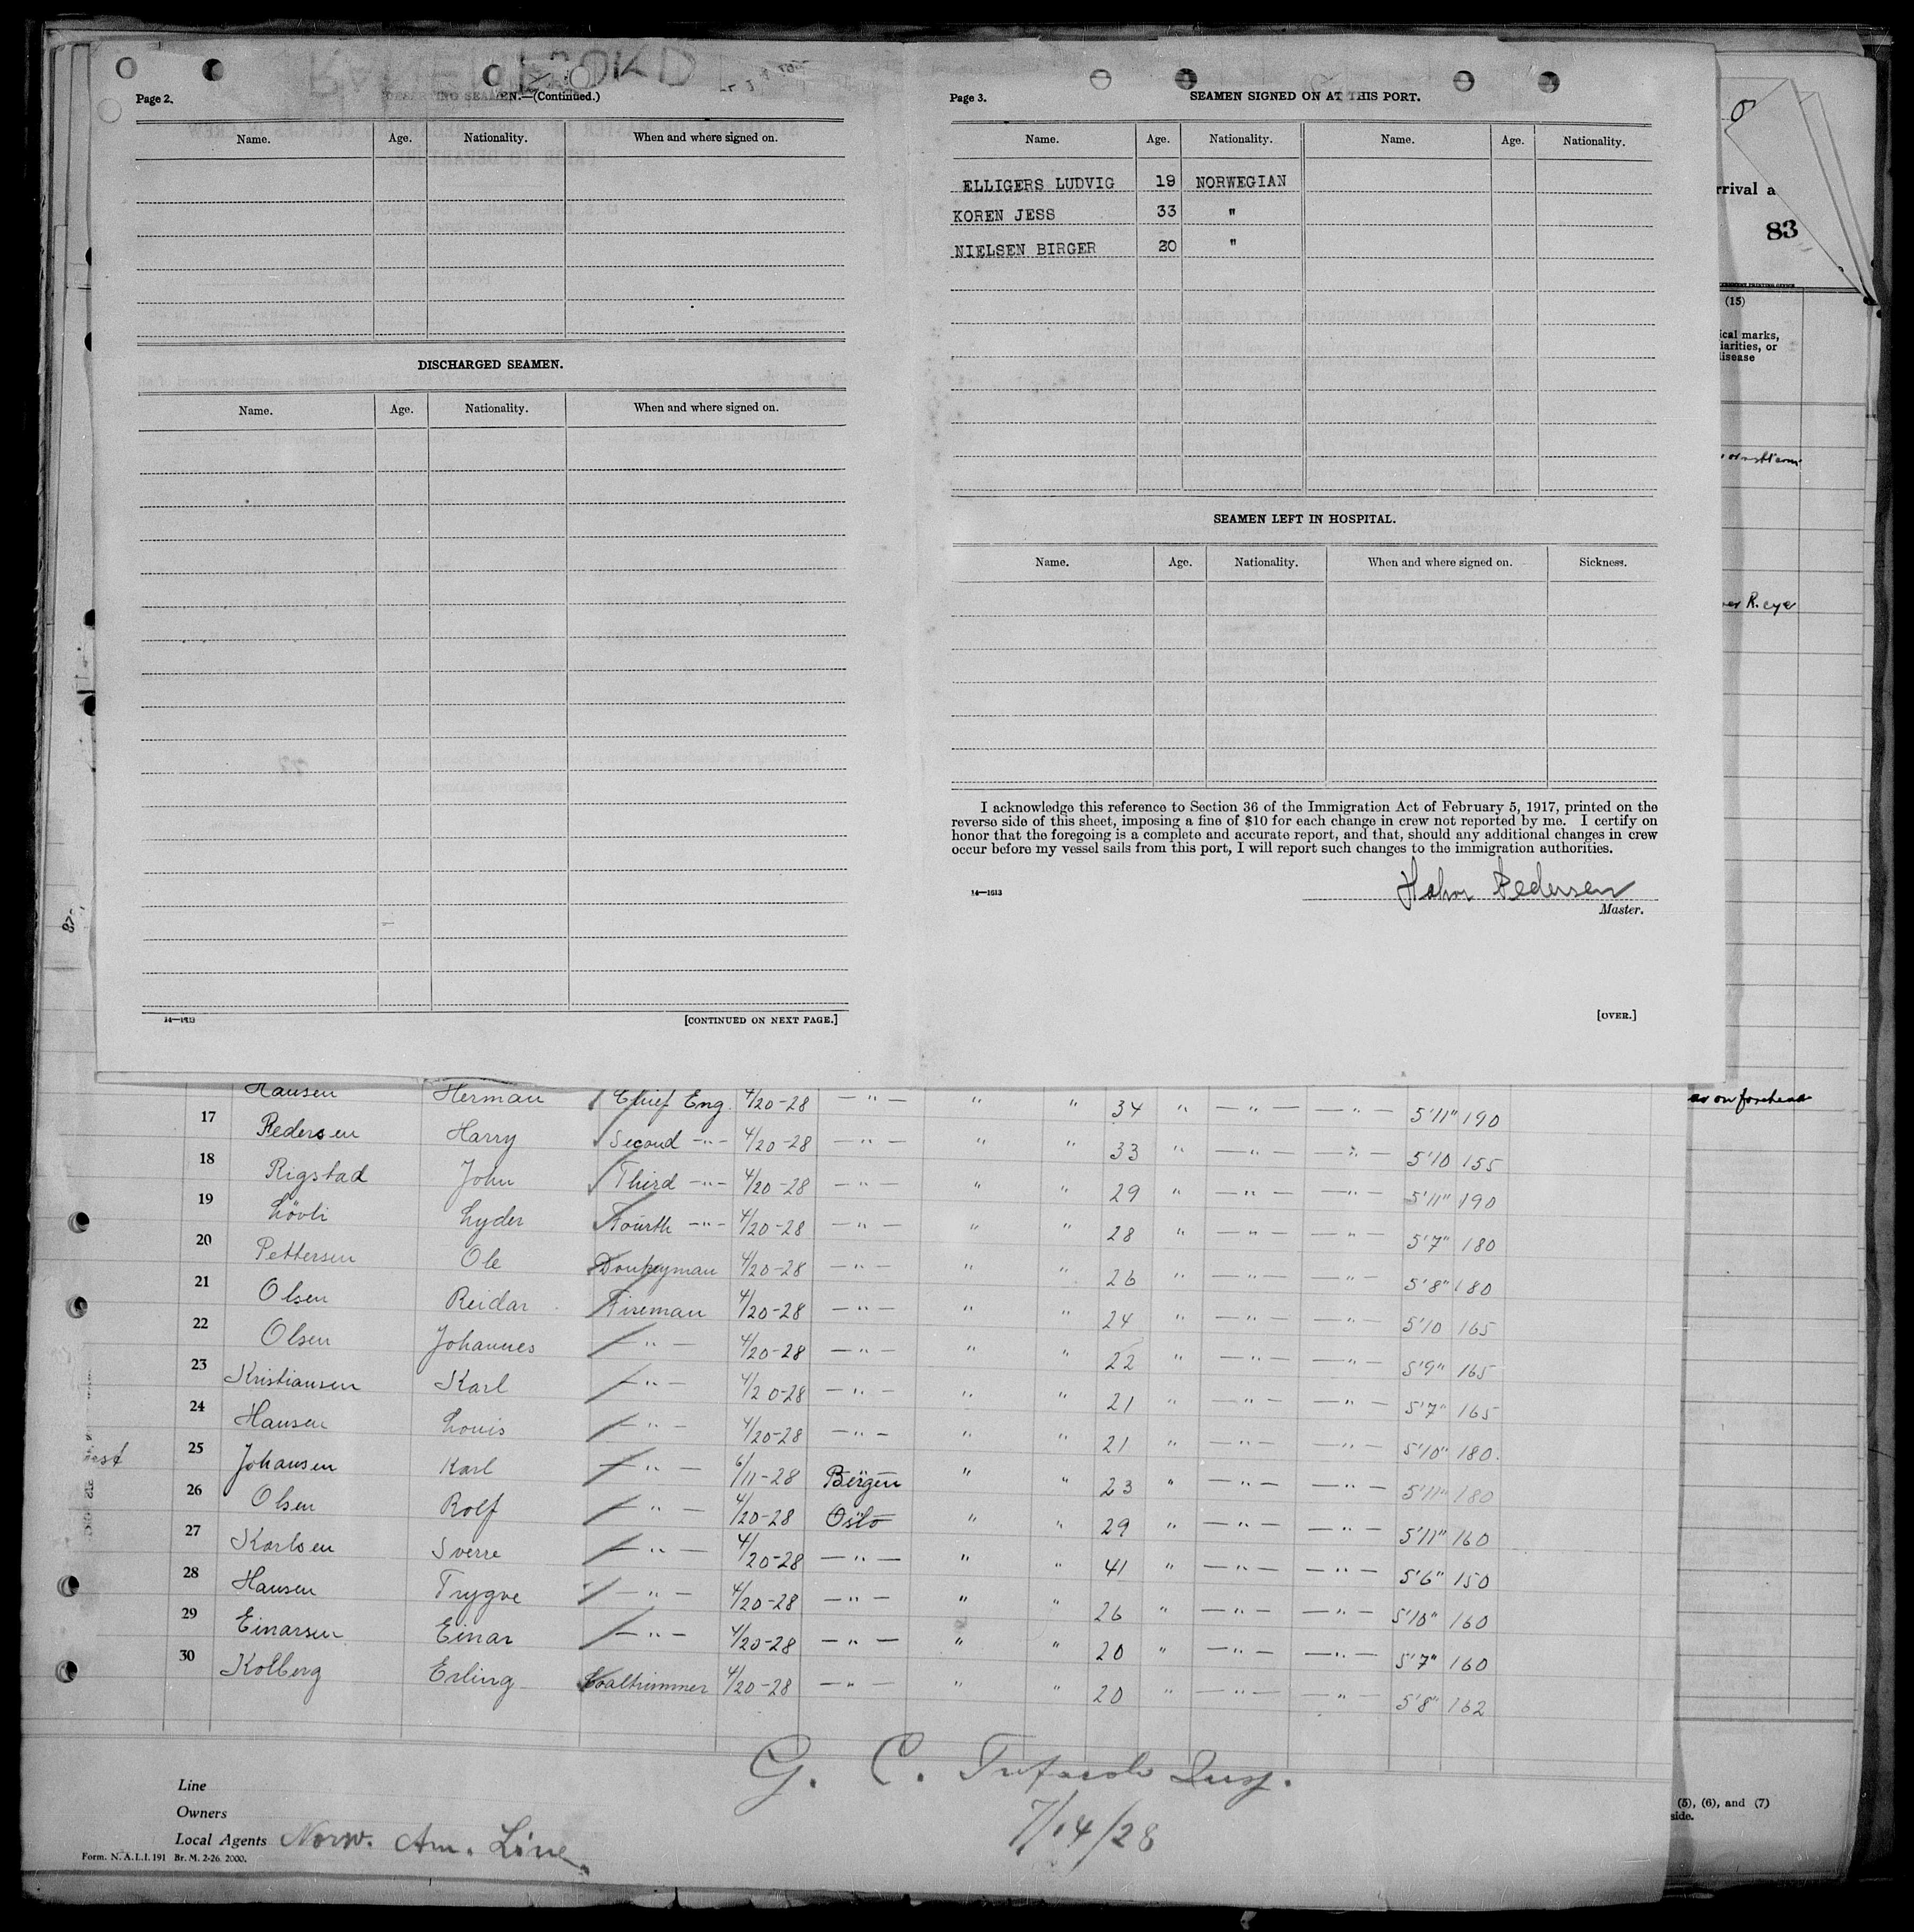 Page 2.
DEPARTING SEAMEN.—(Continued.)
Name. Age. Nationality. When and where signed on.
DISCHARGED SEAMEN.
Name. Age. Nationality. When and where signed on.
14—1613 [CONTINUED ON NEXT PAGE.]
Page 3.
SEAMEN SIGNED ON AT THIS PORT.
Name. Age. Nationality. Name. Age. Nationality.
ELLIGERS LUDVIG 19 NORWEGIAN
KOREN JESS 33 "
NIELSEN BIRGER 20 "
SEAMEN LEFT IN HOSPITAL.
Name. Age. Nationality. When and where signed on. Sickness.
I acknowledge this reference to Section 36 of the Immigration Act of February 5, 1917, printed on the
reverse side of this sheet, imposing a fine of $10 for each change in crew not reported by me. I certify on
honor that the foregoing is a complete and accurate report, and that, should any additional changes in crew
occur before my vessel sails from this port, I will report such changes to the immigration authorities.
Pedersen
Master.
14—1613
[OVER.]
rrival a
83
(15)
ical marks,
liarities, or
disease
R. eye
on forehead
Hansen Herman Chief Eng. 4/20-28 — " — " " 34 " — " — — " — 5'11" 190
17 Pedersen Harry Second — " — 4/20-28 — " — " " 33 " — " — — " — 5'10 155
18 Rigstad John Third — " — 4/20-28 — " — " " 29 " — " — — " — 5'11" 190
19 Lövli Lyder Fourth — " — 4/20-28 — " — " " 28 " — " — — " — 5'7" 180
20 Pettersen Ole Donkeyman 4/20-28 — " — " " 26 " — " — — " — 5'8" 180
21 Olsen Reidar Fireman 4/20-28 — " — " " 24 " — " — — " — 5'10 165
22 Olsen Johannes — " — 4/20-28 — " — " " 22 " — " — — " — 5'9" 165
23 Kristiansen Karl — " — 4/20-28 — " — " " 21 " — " — — " — 5'7" 165
24 Hansen Louis — " — 4/20-28 — " — " " 21 " — " — — " — 5'10" 180
25 Johansen Karl — " — 6/11-28 Bergen " " 23 " — " — — " — 5'11" 180
26 Olsen Rolf — " — 4/20-28 Oslo " " 29 " — " — — " — 5'11" 160
27 Karlsen Sverre — " — 4/20-28 — " — " " 41 " — " — — " — 5'6" 150
28 Hansen Trygve — " — 4/20-28 — " — " " 26 " — " — — " — 5'10" 160
29 Einarsen Einar — " — 4/20-28 — " — " " 20 " — " — — " — 5'7" 160
30 Kolberg Erling Coaltrimmer 4/20-28 — " — " " 20 " — " — — " — 5'8" 162
G. C. Insp.
7/14/28
Line
Owners
Local Agents Norw. Am. Line.
Form. N.A.L.I.191 Br. M. 2-26. 2000.
(5), (6), and (7)
side.